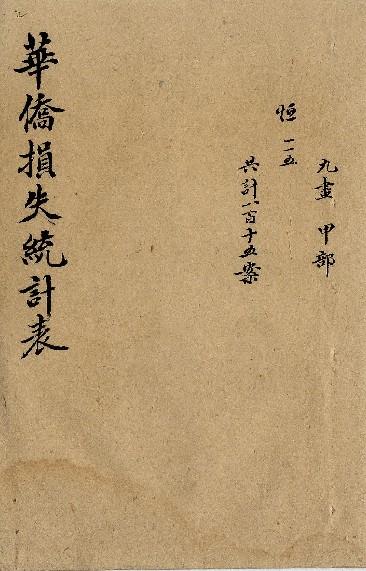 九畫 甲部
恒 一一五
共計一百十五案
華僑損失統計表